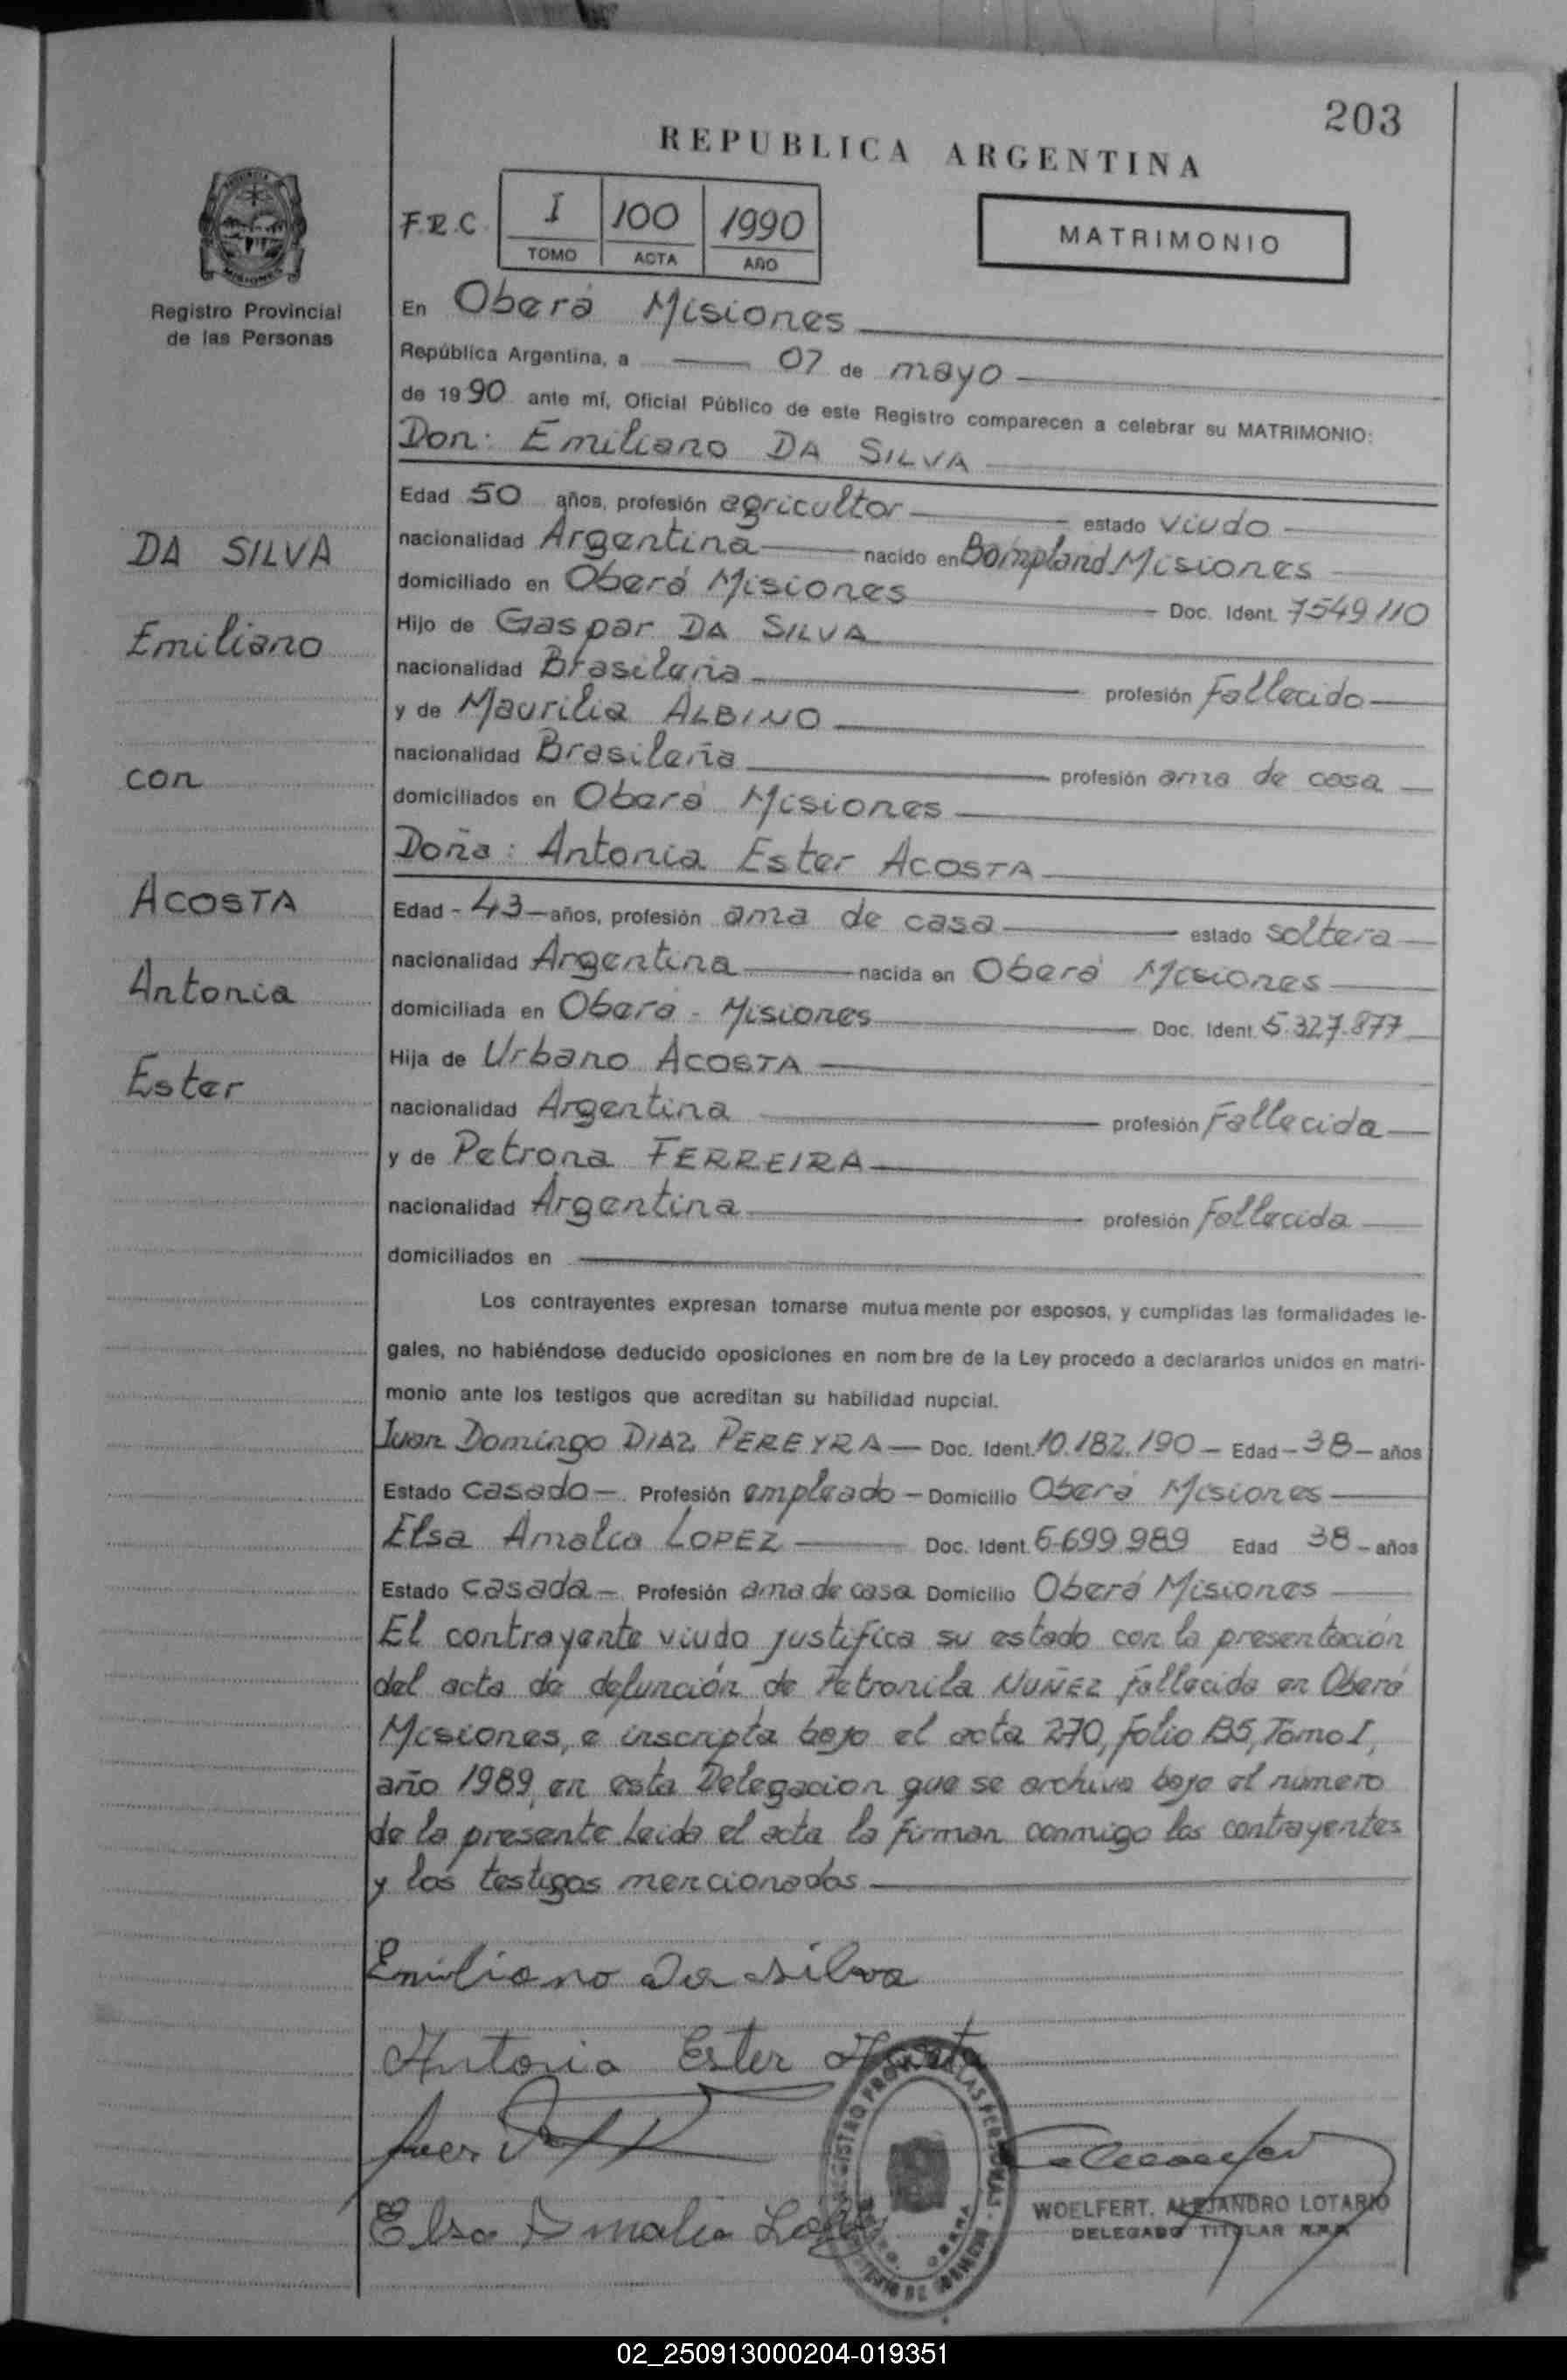 203
REPUBLICA ARGENTINA
F.R.C. I 100 1990
TOMO ACTA AÑO
MATRIMONIO
Registro Provincial
de las Personas
En Oberá Misiones
República Argentina, a 07 de mayo
de 1990 ante mí, Oficial Público de este Registro comparecen a celebrar su MATRIMONIO:
Don: Emiliano DA SILVA
Edad 50 años, profesión agricultor estado viudo
nacionalidad Argentina nacido en Bompland Misiones
domiciliado en Oberá Misiones Doc. Ident. 7549110
Hijo de Gaspar DA SILVA
nacionalidad Brasileña profesión Fallecido
y de Maurilia ALBINO
nacionalidad Brasileña profesión ama de casa
domiciliados en Oberá Misiones
Doña: Antonia Ester ACOSTA
Edad - 43 - años, profesión ama de casa estado soltera
nacionalidad Argentina nacida en Oberá Misiones
domiciliada en Oberá - Misiones Doc. Ident. 5.327.877
Hija de Urbano ACOSTA
nacionalidad Argentina profesión Fallecida
y de Petrona FERREIRA
nacionalidad Argentina profesión Fallecida
domiciliados en
DA SILVA
Emiliano
con
ACOSTA
Antonia
Ester
Los contrayentes expresan tomarse mutuamente por esposos, y cumplidas las formalidades le-
gales, no habiéndose deducido oposiciones en nombre de la Ley procedo a declararlos unidos en matri-
monio ante los testigos que acreditan su habilidad nupcial.
Juan Domingo DIAZ PEREYRA - Doc. Ident. 10.182.190 - Edad - 38 - años
Estado casado - Profesión empleado - Domicilio Oberá Misiones
Elsa Amalia LOPEZ Doc. Ident. 6.699.989 Edad 38 - años
Estado casada - Profesión ama de casa Domicilio Oberá Misiones
El contrayente viudo justifica su estado con la presentación
del acta de defunción de Petronila NUÑEZ fallecida en Oberá
Misiones, e inscripta bajo el acta 270, folio 135, Tomo I,
año 1989, en esta Delegacion que se archiva bajo el número
de la presente. Leida el acta la firman conmigo los contrayentes
y los testigos mencionados
Emiliano da silva
Antonia Ester Acosta
Elsa Amalia López
WOELFERT. ALEJANDRO LOTARIO
DELEGADO TITULAR
02_250913000204-019351